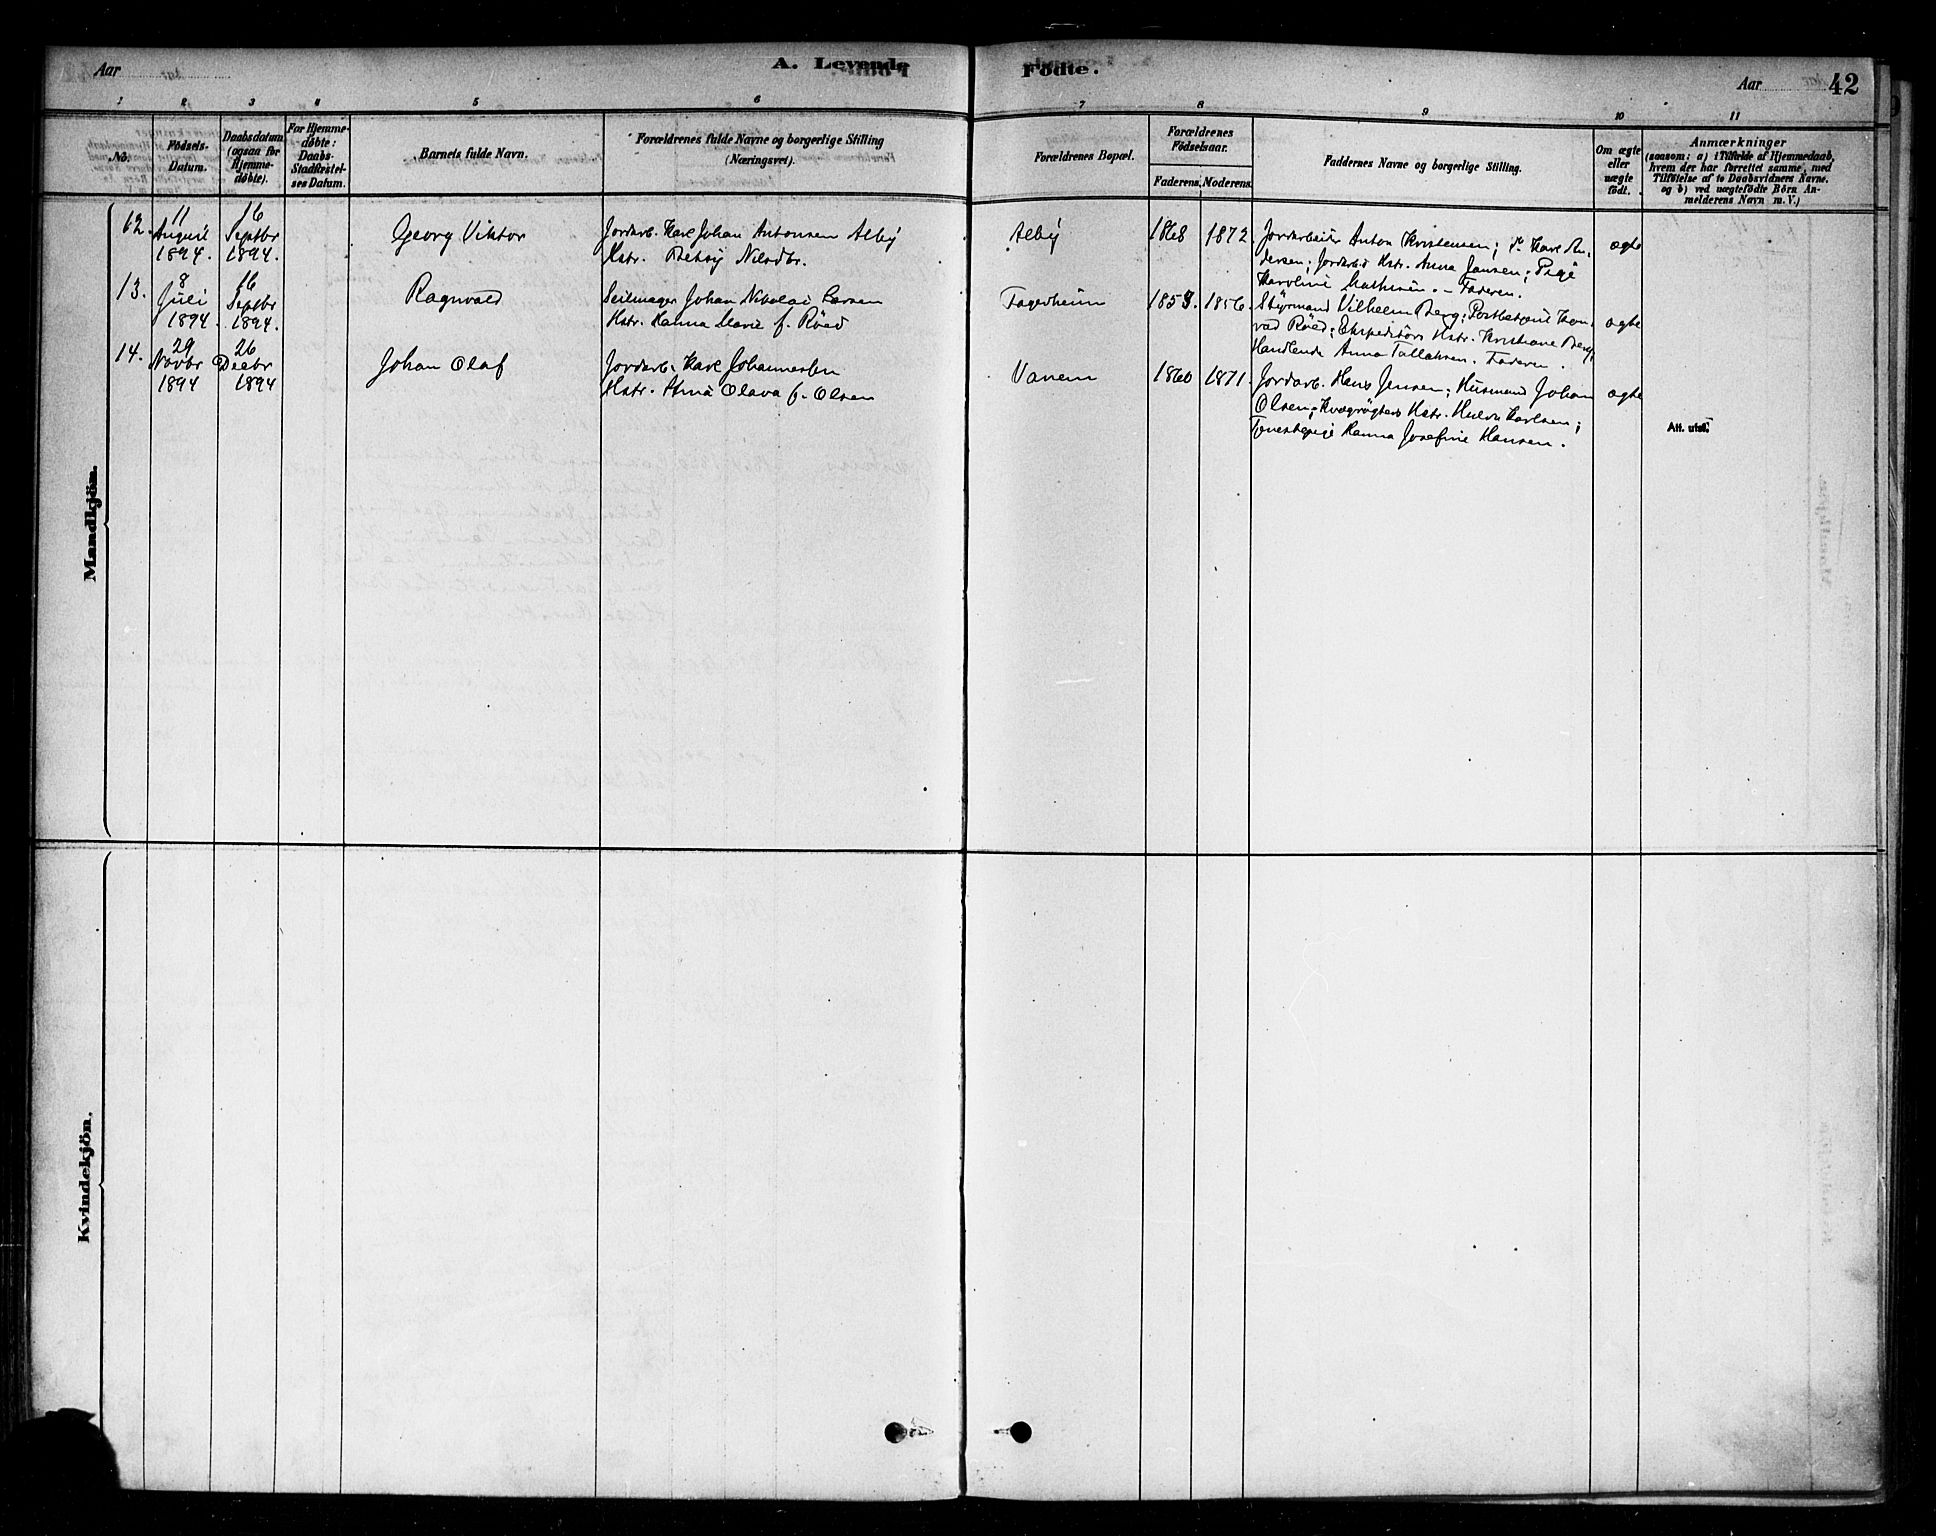 Aar
A. Levende
Födte.
Aar
42
1 2 3 4 5 6 7 8 9 10 11
No.
Födsels-
Datum.
Daabsdatum
(ogsaa for
Hjemme-
døbte).
For Hjemme-
døbte:
Daabs-
Stadfæstel-
ses Datum.
Barnets fulde Navn.
Forældrenes fulde Navne og borgerlige Stilling
(Næringsvei).
Forældrenes Bopæl.
Forældrenes
Födselsaar.
Faderens. Moderens.
Faddernes Navne og borgerlige Stilling.
Om ægte
eller
uægte
født.
Anmærkninger
(saasom: a) i Tilfælde af Hjemmedaab,
hvem der har forrettet samme, med
Tilføielse af to Daabsvidners Navne.
og b) ved uægtefödte Börn An-
melderens Navn m. V.)
Mandkjön.
12.
11
August
1894.
16
Septbr
1894.
Georg Viktor
Jordarb. Karl Johan Antonsen Alby
Hstr. Betsy Nilsdtr.
Alby
1868 1872.
Jordarbeider Anton Kristensen; do Karl An-
dersen; Jordarb.s Hstr. Anna Jansen; Pige
Karoline Mathisen. – Faderen.
ægte
13.
8
Juli
1894.
16
Septbr
1894.
Ragnvald
Seilmager Johan Nikolai Larsen
Hstr. Hanna Marie f. Röed
Fagerheim
1853. 1856.
Styrmand Vilhelm Berg; Postbetjent Kon-
rad Röed; Ekspeditörs Hstr. Kristiane Berg;
Handlende Anna Tallaksen. Faderen.
ægte
14.
29
Novbr
1894
26
Decbr
1894
Johan Olaf
Jordarb. Karl Johannessen
Hstr. Olava f. Olsen
Vanem
1860 1871.
Jordarb. Hans Jensen; Husmand Johan
Olsen; Kvægrögters Hstr. Karlsen;
Tjenestepige Hanna Josefine Hansen.
ægte
Att. utst.
Kvindekjön.